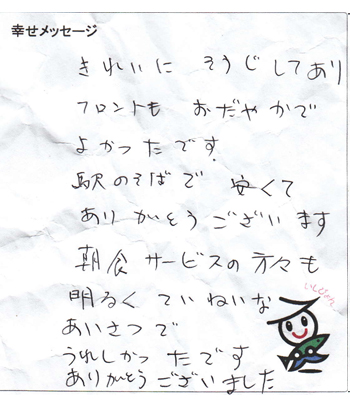 幸せメッセージ
きれいに そうじしてあり
フロントも おだやかで
よかったです.
駅のそばで 安くて
ありがとうございます
朝食サービスの方々も
明るくていねいな
あいさつで
うれしかったです
ありがとうございました